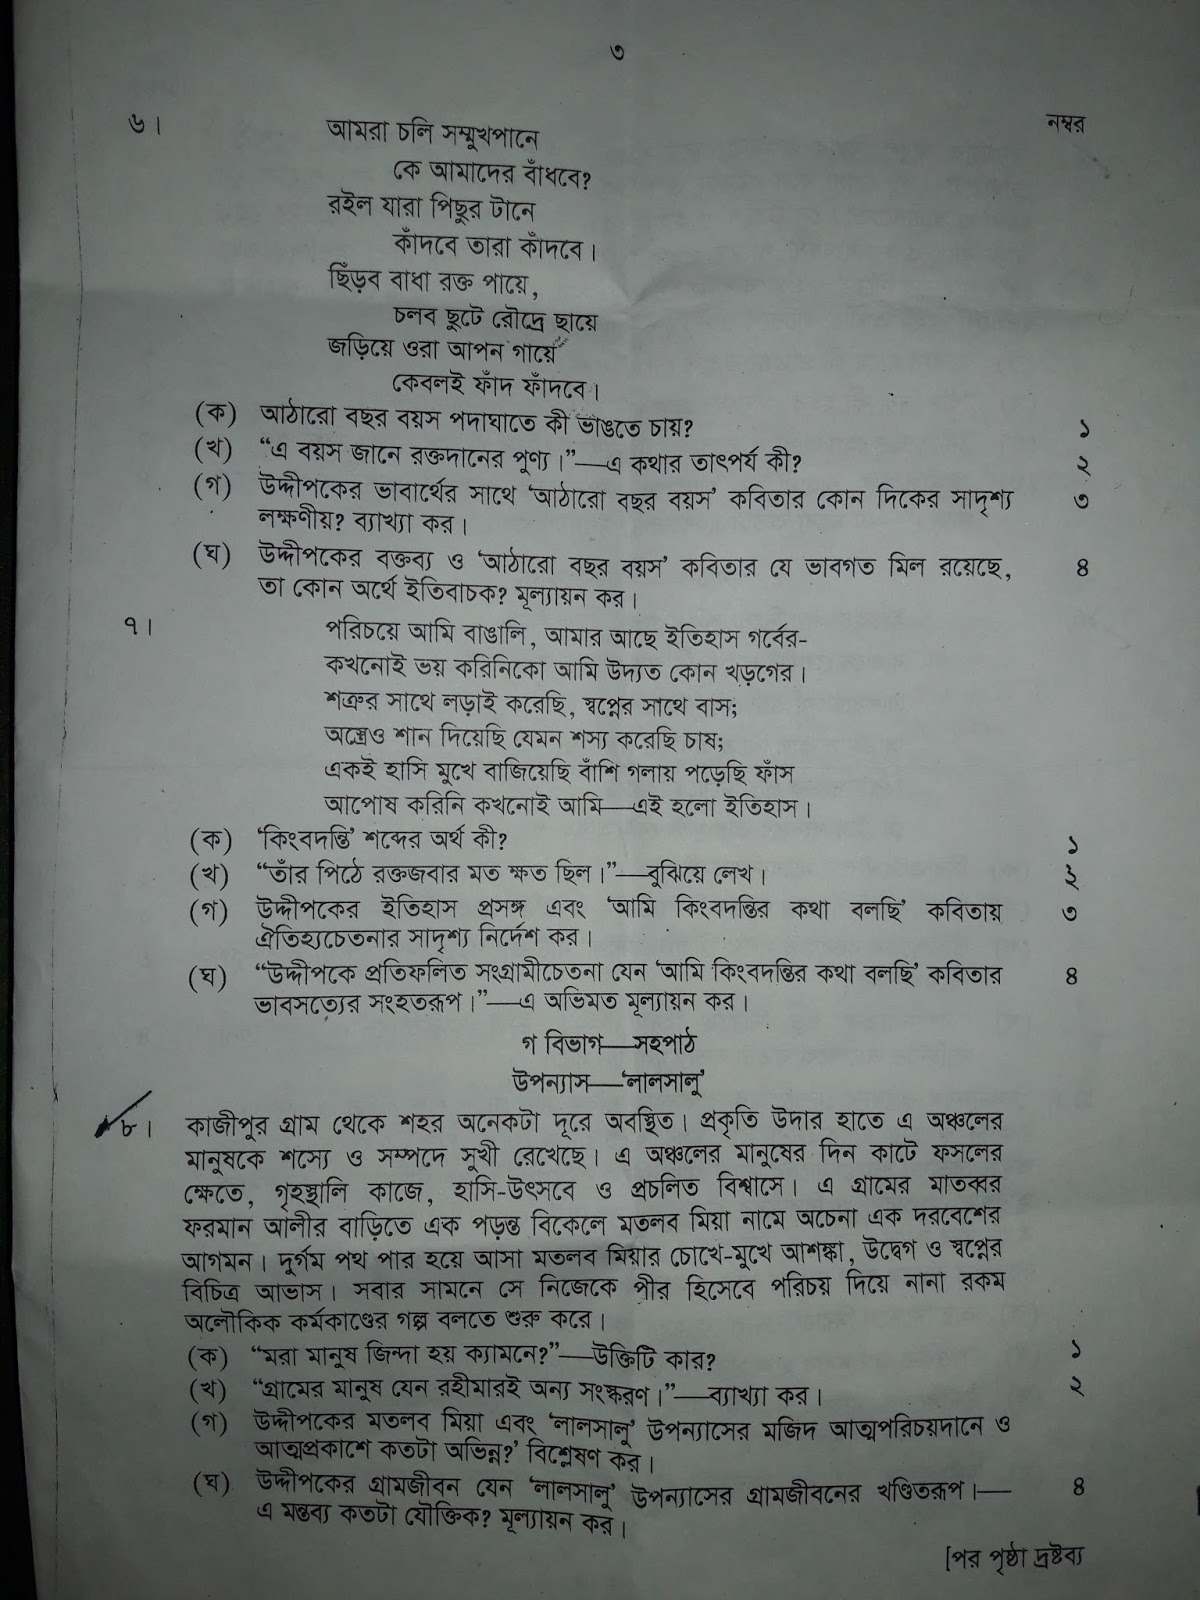 ৩
৬। আমরা চলি সম্মুখপানে নম্বর
কে আমাদের বাঁধবে?
রইল যারা পিছুর টানে
কাঁদবে তারা কাঁদবে।
ছিঁড়ব বাধা রক্ত পায়ে,
চলব ছুটে রৌদ্রে ছায়ে
জড়িয়ে ওরা আপন গায়ে
কেবলই ফাঁদ ফাঁদবে।
(ক) আঠারো বছর বয়স পদাঘাতে কী ভাঙতে চায়? ১
(খ) “এ বয়স জানে রক্তদানের পুণ্য।”—এ কথার তাৎপর্য কী? ২
(গ) উদ্দীপকের ভাবার্থের সাথে ‘আঠারো বছর বয়স’ কবিতার কোন দিকের সাদৃশ্য ৩
লক্ষণীয়? ব্যাখ্যা কর।
(ঘ) উদ্দীপকের বক্তব্য ও ‘আঠারো বছর বয়স’ কবিতার যে ভাবগত মিল রয়েছে, ৪
তা কোন অর্থে ইতিবাচক? মূল্যায়ন কর।
৭। পরিচয়ে আমি বাঙালি, আমার আছে ইতিহাস গর্বের-
কখনোই ভয় করিনিকো আমি উদ্যত কোন খড়গের।
শত্রুর সাথে লড়াই করেছি, স্বপ্নের সাথে বাস;
অস্ত্রেও শান দিয়েছি যেমন শস্য করেছি চাষ;
একই হাসি মুখে বাজিয়েছি বাঁশি গলায় পড়েছি ফাঁস
আপোষ করিনি কখনোই আমি—এই হলো ইতিহাস।
(ক) ‘কিংবদন্তি’ শব্দের অর্থ কী? ১
(খ) “তাঁর পিঠে রক্তজবার মত ক্ষত ছিল।”—বুঝিয়ে লেখ। ২
(গ) উদ্দীপকের ইতিহাস প্রসঙ্গ এবং ‘আমি কিংবদন্তির কথা বলছি’ কবিতায় ৩
ঐতিহ্যচেতনার সাদৃশ্য নির্দেশ কর।
(ঘ) “উদ্দীপকে প্রতিফলিত সংগ্রামীচেতনা যেন ‘আমি কিংবদন্তির কথা বলছি’ কবিতার ৪
ভাবসত্যের সংহতরূপ।”—এ অভিমত মূল্যায়ন কর।
গ বিভাগ—সহপাঠ
উপন্যাস—‘লালসালু’
৮। কাজীপুর গ্রাম থেকে শহর অনেকটা দূরে অবস্থিত। প্রকৃতি উদার হাতে এ অঞ্চলের
মানুষকে শস্যে ও সম্পদে সুখী রেখেছে। এ অঞ্চলের মানুষের দিন কাটে ফসলের
ক্ষেতে, গৃহস্থালি কাজে, হাসি-উৎসবে ও প্রচলিত বিশ্বাসে। এ গ্রামের মাতব্বর
ফরমান আলীর বাড়িতে এক পড়ন্ত বিকেলে মতলব মিয়া নামে অচেনা এক দরবেশের
আগমন। দুর্গম পথ পার হয়ে আসা মতলব মিয়ার চোখে-মুখে আশঙ্কা, উদ্বেগ ও স্বপ্নের
বিচিত্র আভাস। সবার সামনে সে নিজেকে পীর হিসেবে পরিচয় দিয়ে নানা রকম
অলৌকিক কর্মকাণ্ডের গল্প বলতে শুরু করে।
(ক) “মরা মানুষ জিন্দা হয় ক্যামনে?”—উক্তিটি কার? ১
(খ) “গ্রামের মানুষ যেন রহীমারই অন্য সংস্করণ।”—ব্যাখ্যা কর। ২
(গ) উদ্দীপকের মতলব মিয়া এবং ‘লালসালু’ উপন্যাসের মজিদ আত্মপরিচয়দানে ও ৩
আত্মপ্রকাশে কতটা অভিন্ন?’ বিশ্লেষণ কর।
(ঘ) উদ্দীপকের গ্রামজীবন যেন ‘লালসালু’ উপন্যাসের গ্রামজীবনের খণ্ডিতরূপ।— ৪
এ মন্তব্য কতটা যৌক্তিক? মূল্যায়ন কর।
[পর পৃষ্ঠা দ্রষ্টব্য